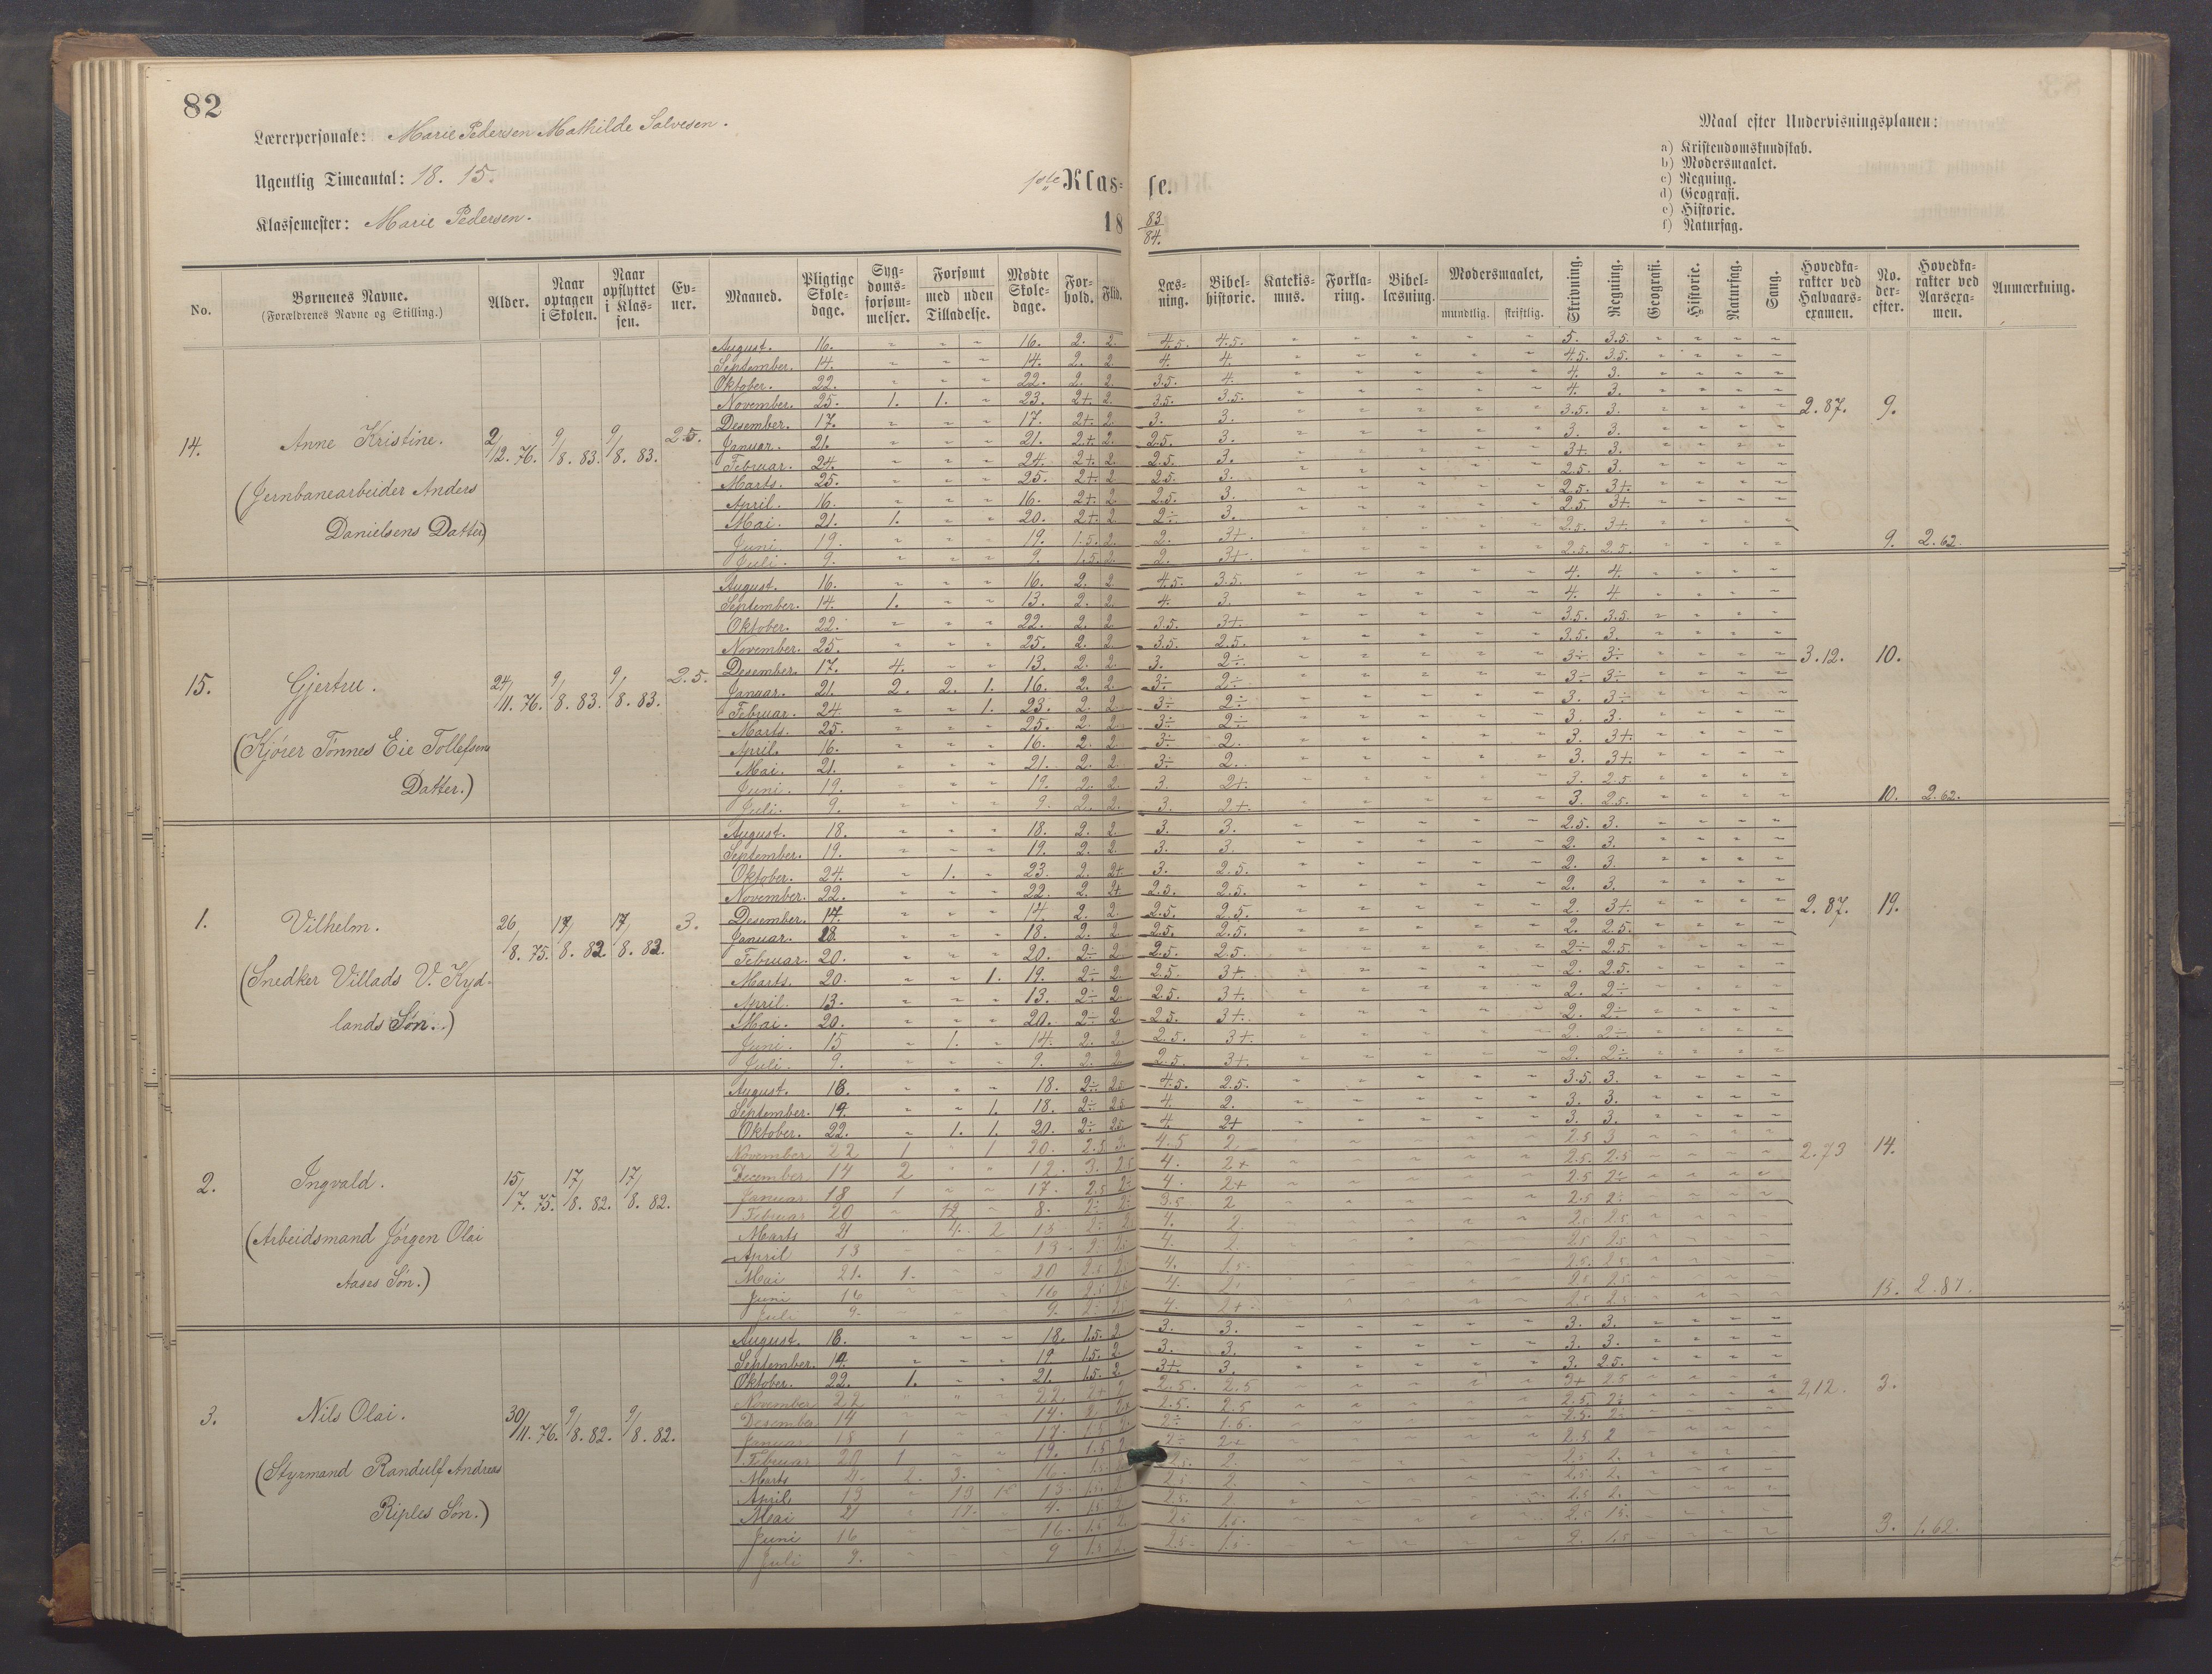 82
Lærerpersonale: Marie Pedersen Mathilde Salvesen.
Ugentlig Timeantal: 18. 15.
Klassemester: Marie Pedersen.
1ste Klas- se.
18 83/84.
Maal efter Undervisningsplanen:
a) Kristendomskundskab.
b) Modersmaalet.
c) Regning.
d) Geografi.
e) Historie.
f) Naturfag.
No. Børnenes Navne. (Forældrenes Navne og Stilling.) Alder. Naar optagen i Skolen. Naar opflyttet i Klassen. Evner. Maaned. Pligtige Skoledage. Sygdomsforsømmelser. Forsømt med uden Tilladelse. Mødte Skoledage. Forhold. Flid. Læsning. Bibelhistorie. Katekismus. Forklaring. Bibellæsning. Modersmaalet, mundtlig. skriftlig. Skrivning. Regning. Geografi. Historie. Naturfag. Sang. Hovedkarakter ved Halvaarsexamen. No. derefter. Hovedkarakter ved Aarsexamen. Anmærkning.
14. Anne Kristine. 2/12. 76. 9/8. 83. 9/8. 83. 2.5.
(Jernbanearbeider Anders
Danielsens Datter)
August. 16. " " " 16. 2. 2. 4.5. 4.5. " " " " " 5. 3.5. " " " "
September. 14. " " " 14. 2. 2. 4. 4. " " " " " 4.5. 3.5. " " " "
Oktober. 22. " " " 22. 2. 2. 3.5. 4. " " " " " 4. 3. " " " "
November. 25. 1. 1. " 23. 2+. 2. 3.5. 3.5. " " " " " 4. 3. " " " "
Desember. 17. " " " 17. 2+. 2. 3. 3. " " " " " 3.5. 3. " " " " 2.87. 9.
Januar. 21. " " " 21. 2+. 2. 2.5. 3. " " " " " 3. 3. " " " "
Februar. 24. " " " 24. 2+. 2. 2.5. 3. " " " " " 3+ 3. " " " "
Marts. 25. " " " 25. 2+. 2 2.5. 3. " " " " " 2.5. 3. " " " "
April. 16. " " " 16. 2+. 2 2.5. 3. " " " " " 2.5. 3+. " " " "
Mai. 21. 1. " " 20. 2+. 2 2÷ 3. " " " " " 2.5. 3+ " " " "
Juni. 19. " " " 19. 1.5. 2. 2. 3+. " " " " " 2.5. 3+. " " " "
Juli. 9. " " " 9. 1.5. 2. 2. 3+. " " " " " 2.5. 2.5. " " " " 9. 2.62.
15. Gjertru. 24/11. 76. 9/8. 83. 9/8. 83. 2.5.
(Kjører Tønnes Eie Tollefsens
Datter.)
August. 16. " " " 16. 2. 2. 4.5. 3.5. " " " " " 4. 4. " " " "
September. 14. 1. " " 13. 2. 2. 4. 3. " " " " " 4. 4. " " " "
Oktober. 22. " " " 22. 2. 2. 3.5. 3+. " " " " " 3.5. 3.5. " " " "
November. 25. " " " 25. 2. 2. 3.5. 2.5. " " " " " 3.5. 3. " " " "
Desember. 17. 4. " " 13. 2. 2. 3. 2÷. " " " " " 3÷ 3÷ " " " " 3.12. 10.
Januar. 21. 2. 2. 1. 16. 2. 2. 3÷ 2÷ " " " " " 3÷ 3÷ " " " "
Februar. 24. " " 1. 23. 2. 2. 3÷ 2÷ " " " " " 3. 3÷ " " " "
Marts. 25. " " " 25. 2. 2. 3÷ 2÷ " " " " " 3. 3. " " " "
April. 16. " " " 16. 2. 2. 3÷ 2. " " " " " 3. 3+. " " " "
Mai. 21. " " " 21. 2. 2. 3÷ 2. " " " " " 3. 3+. " " " "
Juni. 19. " " " 19. 2. 2. 3. 2+. " " " " " 3. 2.5 " " " "
Juli. 9. " " " 9. 2. 2. 3. 2+. " " " " " 3. 2.5. " " " " 10. 2.62.
1. Vilhelm. 26/8. 75. 17/8. 82. 17/8. 82. 3.
(Snedker Villads V. Kyd-
lands Søn.)
August. 18. " " " 18. 2. 2. 3. 3. " " " " " 2.5. 3. " " " "
September. 19. " " " 19. 2. 2. 3. 3. " " " " " 2. 3. " " " "
Oktober. 24. " 1. " 23. 2. 2+ 3. 2.5. " " " " " 2. 3. " " " "
November. 22. " " " 22. 2. 2+ 2.5. 2.5. " " " " " 2. 3. " " " "
Desember. 14. " " " 14. 2. 2. 2.5. 2.5. " " " " " 2. 3+. " " " " 2.87. 19.
Januar. 18. " " " 18. 2. 2. 2.5. 2.5. " " " " " 2. 2.5. " " " "
Februar. 20. " " " 20. 2÷ 2. 2.5. 2.5. " " " " " 2÷ 2.5. " " " "
Marts. 20. " " 1. 19. 2÷ 2. 2.5. 3+. " " " " " 2. 2.5. " " " "
April. 13. " " " 13. 2÷ 2. 2.5. 3+. " " " " " 2. 2÷ " " " "
Mai. 20. " " " 20. 2÷ 2 2.5. 3+. " " " " " 2. 2÷ " " " "
Juni. 15 " 1. " 14. 2. 2. 2.5. 3+. " " " " " 2. 2÷ " " " "
Juli. 9. " " " 9. 2. 2. 2.5. 3+. " " " " " 2. 2÷. " " " "
2. Ingvald. 15/7. 75. 17/8. 82. 17/8. 82.
(Arbeidsmand Jørgen Olai
Aases Søn.)
August. 18. " " " 18. 2÷ 2.5 4.5. 2.5. " " " " " 3.5. 3. " " " "
September. 19. " " 1. 18. 2÷ 2.5 4. 2. " " " " " 3. 3. " " " "
Oktober. 22. " 1. 1. 20. 2÷ 2.5. 4. 2+ " " " " " 3. 3. " " " "
November 22 1 " 1 20. 2.5 3. 4.5 2 " " " " " 2.5 3 " " " "
December 14 2 " " 12. 3. 2.5 4. 2+ " " " " " 2.5. 2.5 " " " " 2.73 14.
Januar 18 1 " " 17. 2.5 2÷ 4. 2+ " " " " " 2.5 2÷ " " " "
Februar 20 " 12 " 8. 2÷ 2÷ 3.5 2 " " " " " 2.5 2÷ " " " "
Marts 21 " 4. 2 15 2÷ 2 4. 2. " " " " " 2.5 2.5 " " " "
April 13 " " " 13. 4. 2. " " " " " 2.5 2.5 " " " "
Mai 21. 1. " " 20 2.5 4. 1.5. " " " " " 2.5. 2.5 " " " "
Juni 16 " " " 16 4. " " " " " 2.5 2.5 " " " "
Juli 9. " " " 9. 4. 2+. " " " " " 2.5 " " " " 15. 2.87.
3. Nils Olai. 30/11. 76. 9/8. 82. 9/8. 82.
(Styrmand Randulf Andreas
Riples Søn.)
August. 18. " " " 18. 1.5. 2. 3. 3. " " " " " 3. 3. " " " "
September. 19. " " " 19. 1.5. 2. 3. 3. " " " " " 3. 3. " " " "
Oktober. 22. 1. " " 21. 1.5. 2. 3+. 3. " " " " " 3. 2.5. " " " "
November 22 " " " 22. 2+ 2 2.5. 2.5 " " " " " 3+ 2.5 " " " "
Desember 14 " " " 14. 2 2+ 2.5. 2.5 " " " " " 2.5. 2÷ " " " " 2,12. 3.
Januar 18 1 " " 17. 1.5 2÷ 1.5. " " " " " 2.5. 2÷ " " " "
Februar 20 1 " " 19. 1.5 2 2÷ 2+ " " " " " 2.5 2 " " " "
Marts 21. 2. 3. " 16. 1.5 2.5. 2. " " " " " 2.5 2. " " " "
April 13 " 13. 1.5. 2.5 2. " " " " " 2.5. 2. " " " "
Mai 21 " 17. " 4. 1.5 2 2.5. 2. " " " " " 2.5 2. " " " "
Juni 16 " " " 16. 1.5 2. 2.5 1.5. " " " " " 2.5 1.5. " " " "
Juli 9. " " " 9 1.5 2. 2.5. 1.5. " " " " " 2. 1.5 " " " " 3. 1.62.